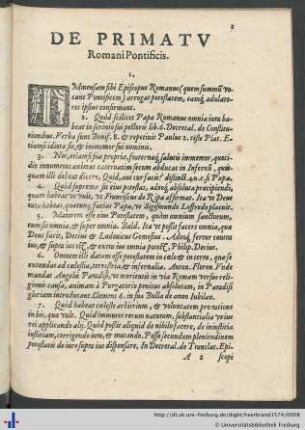 DE PRIMATV
Romani Pontificis.
1.
IMmensam sibi Episcopus Romanus (quem summũ vo
cant Pontificem) arrogat potestatem, eamq́; adulato-
res ipsius confirmant.
2. Quòd scilicet Papa Romanus omnia iura ha
beat in scrinio sui pectoris lib. 6. Decretal. de Constitu
tionibus. Verba sunt Bonif. 8. & repetiuit Paulus 2. teste Plat.
Etiamsi idiota sit, & ignominiosus nominis.
3. Nec, etiamsi suæ propriæ, fraternæq́; salutis immemor, quoti-
die innumeras animas cateruatim secum abducat in Infernũ, quis-
quam illi debeat dicere, Quid, aut cur facis? distinct. 40. c. si Papa.
4. Quòd suprema sit eius potestas, adeoq́; absoluta præcipiendi,
quam habeat in vos, vt Franciscus de Ripa affirmat. Ita vt Deus
teneatur ratum habere, quicquid faciat Papa, vt
5. Maiorem esse eius Potestatem, quàm omnium sanctorum,
cum sit omnia, & super omnia. Bald. Ita vt possit facere omnia, quæ
Deus facit, Decius & Ludouicus Gomesius. Adeoq́; feretur contra
ius, & super ius, & extra ius omnia potest, Philip. Decius.
6. Omnem illi datam esse potestatem in cœlo & in terra, quam se
extendat ad cœlestia, terrestria, & infernalia. Anton. Floren. Vnde
mandat Angelis Paradisi, vt morientis in via Romam versus reli-
gionis causa, animam à Purgatorio penitus absolutam, in Paradisi
gloriam introducant. Clemens 6. in sua Bulla de anno Iubileo.
7. Quòd habeat cœleste arbitrium, & voluntatem pro ratione
in his, quæ vult. Quòd immutet rerum naturam, substantialia vnius
rei applicando alij. Quòd possit aliquid de nihilo facere, de iniustitia
iustitiam, corrigendo iura, & mutando. Posse secundum plenitudinem
potestatis de iure supra ius dispensare, In Decretal. de Translat. Epi-
A 2 scopi
http://dl.ub.uni-freiburg.de/diglit/heerbrand1574/0008
© Universitätsbibliothek Freiburg